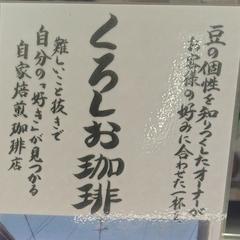 豆の個性を知りつくしたオーナーが
お客様の好みに合わせた一杯
くろしお珈琲
難しいこと抜きで
自分の「好き」が見つかる
自家焙煎珈琲店